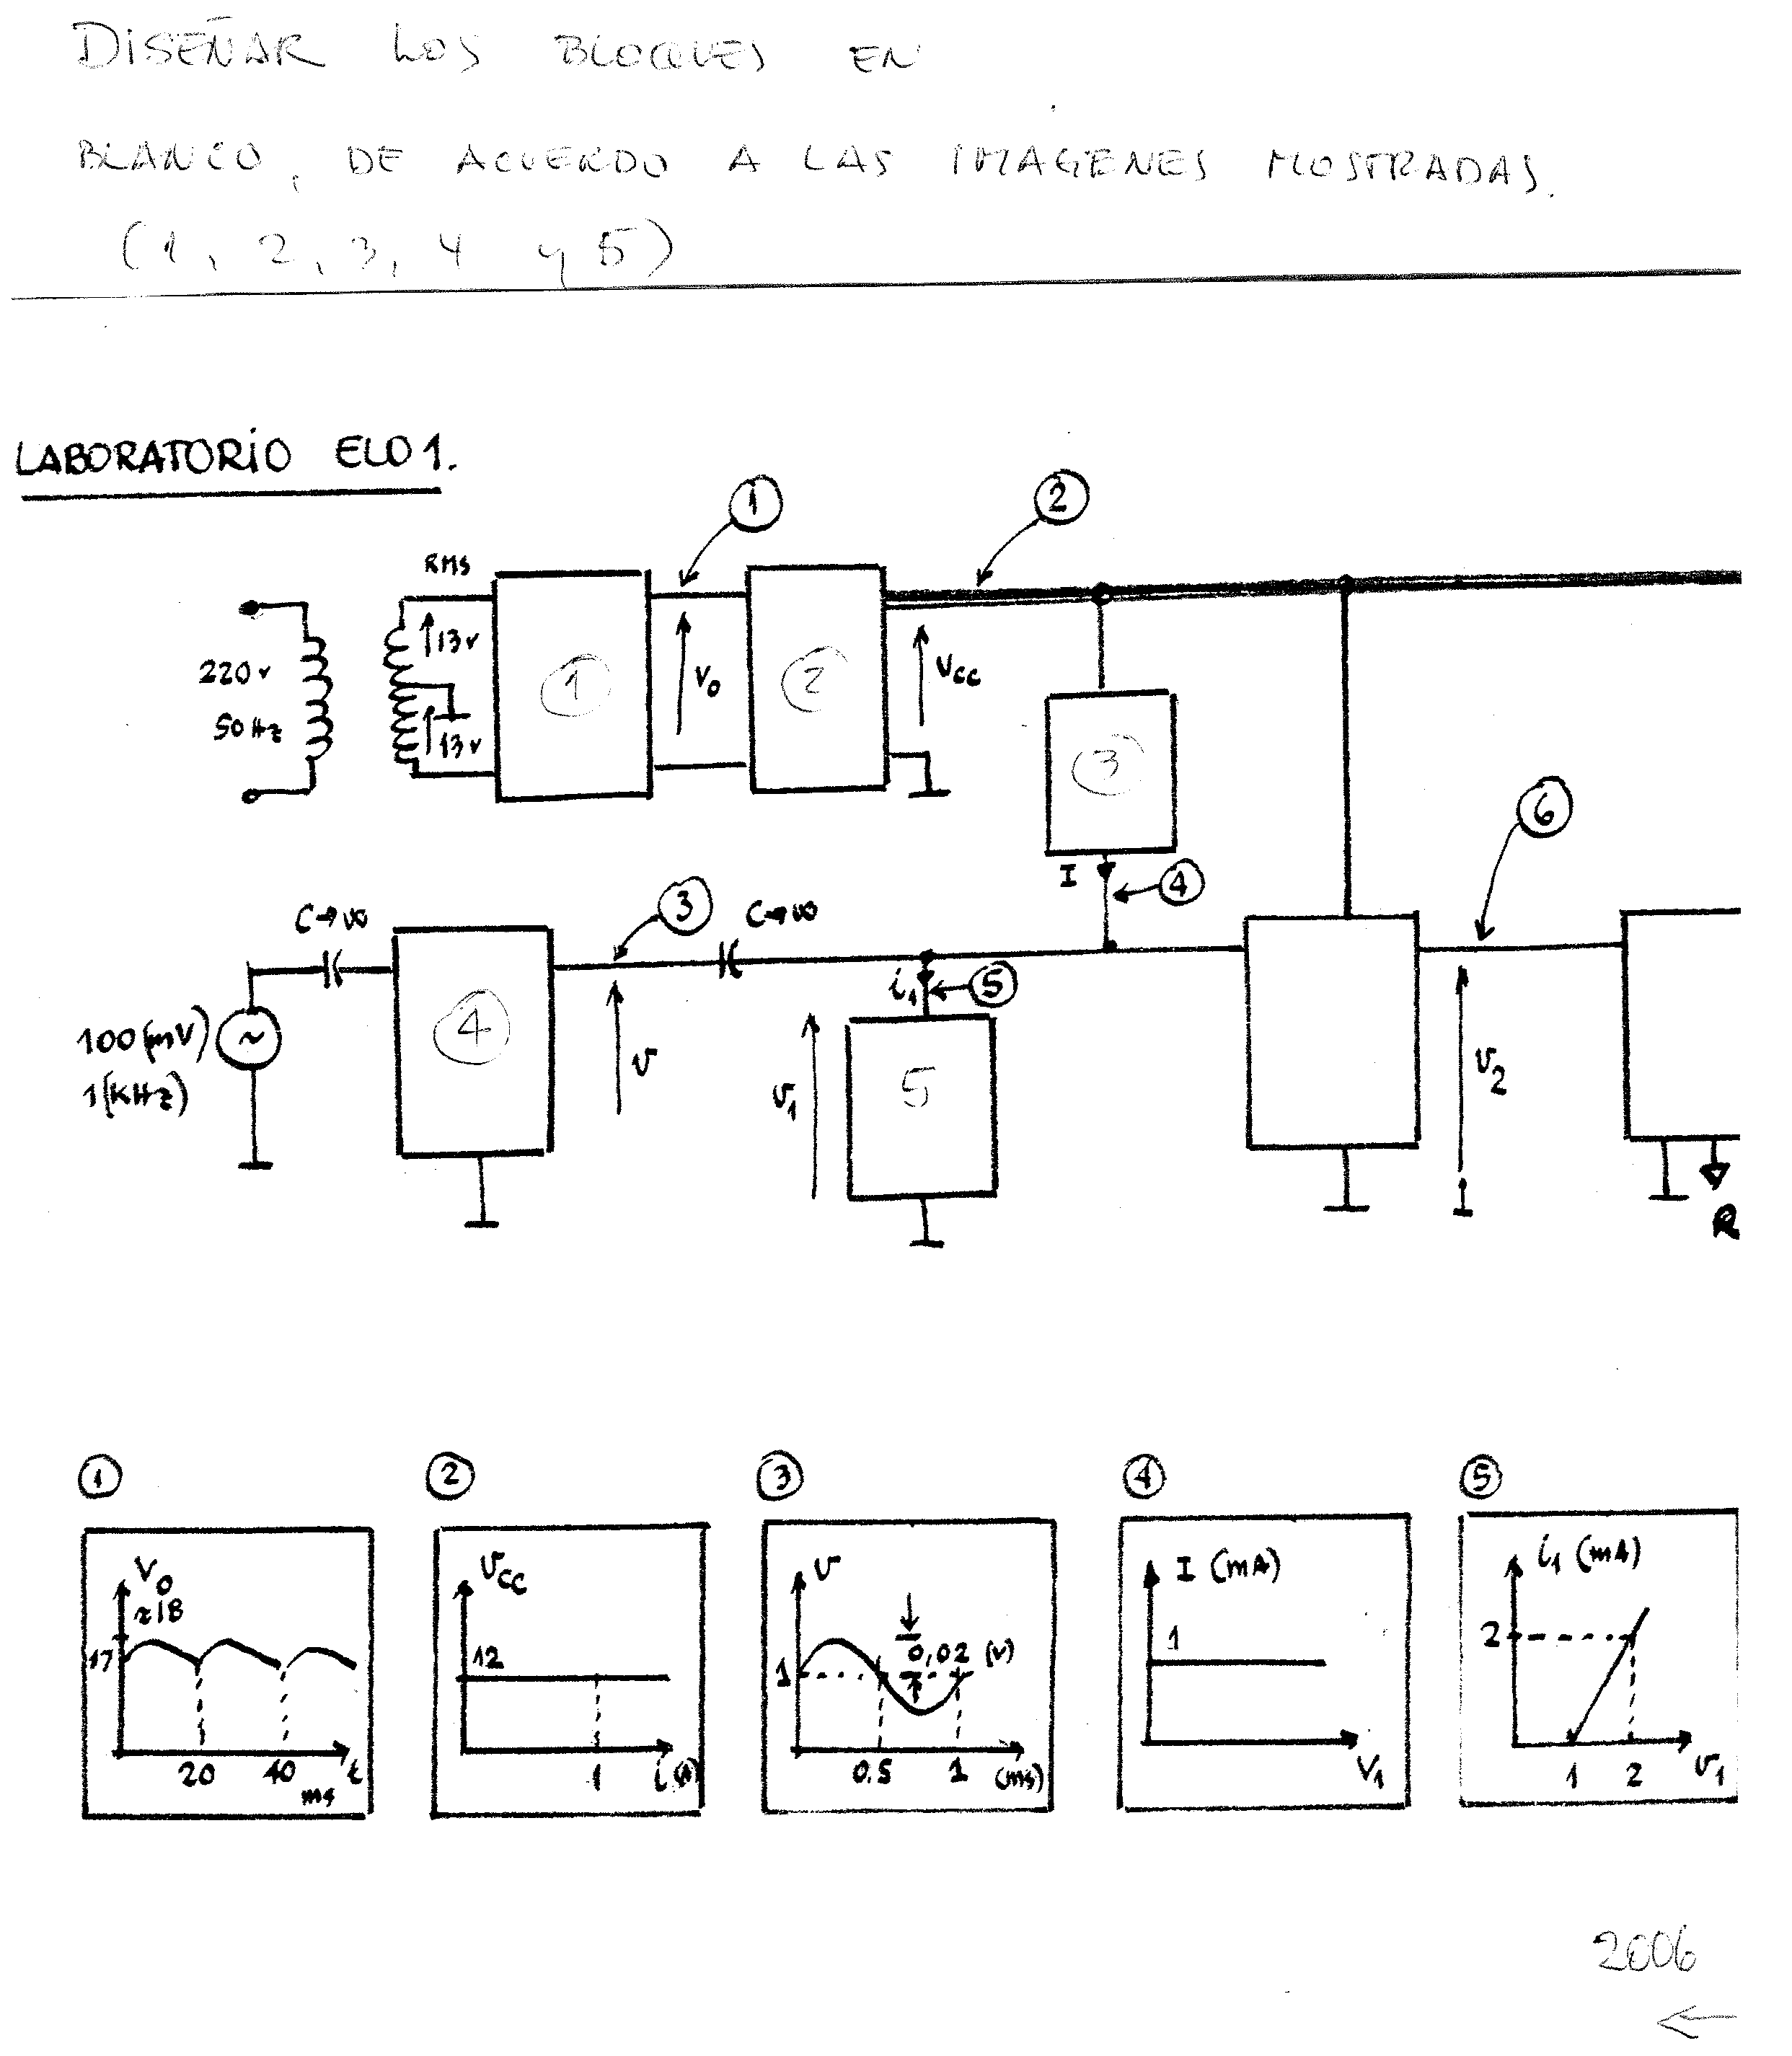 DISEÑAR LOS BLOQUES EN
BLANCO, DE ACUERDO A LAS IMAGENES MOSTRADAS.
(1, 2, 3, 4 y 5)
LABORATORIO ELO1.
1
2
RMS
220v
50Hz
13v
13v
1
V₀
2
Vcc
3
I
4
6
C→∞
3
C→∞
100(mV)
1(KHz)
4
v
i₁
5
v₁
5
v₂
R
1
2
3
4
5
V₀
≈18
17
20
40
ms
t
vcc
12
1
i(A)
v
1
0,02 (v)
0.5
1
(ms)
I (mA)
1
V₁
i₁ (mA)
2
1
2
v₁
2006